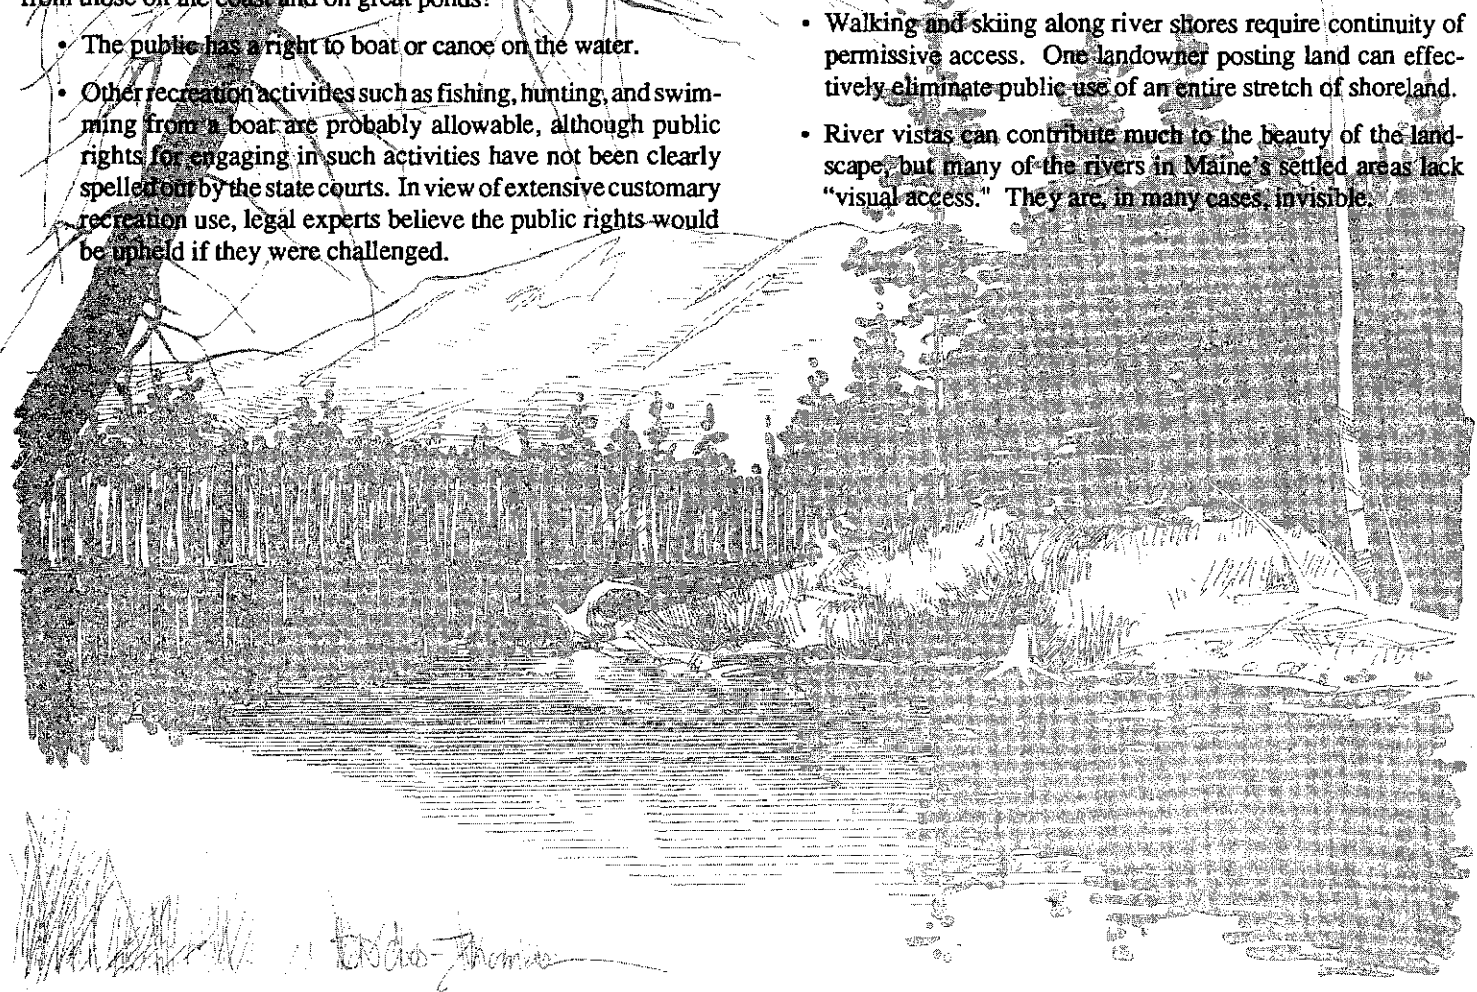 from those on the coast and on great ponds:
• The public has a right to boat or canoe on the water.
• Other recreation activities such as fishing, hunting, and swim-
ming from a boat are probably allowable, although public
rights for engaging in such activities have not been clearly
spelled out by the state courts. In view of extensive customary
recreation use, legal experts believe the public rights would
be upheld if they were challenged.
• Walking and skiing along river shores require continuity of
permissive access. One landowner posting land can effec-
tively eliminate public use of an entire stretch of shoreland.
• River vistas can contribute much to the beauty of the land-
scape, but many of the rivers in Maine's settled areas lack
“visual access." They are, in many cases, invisible.